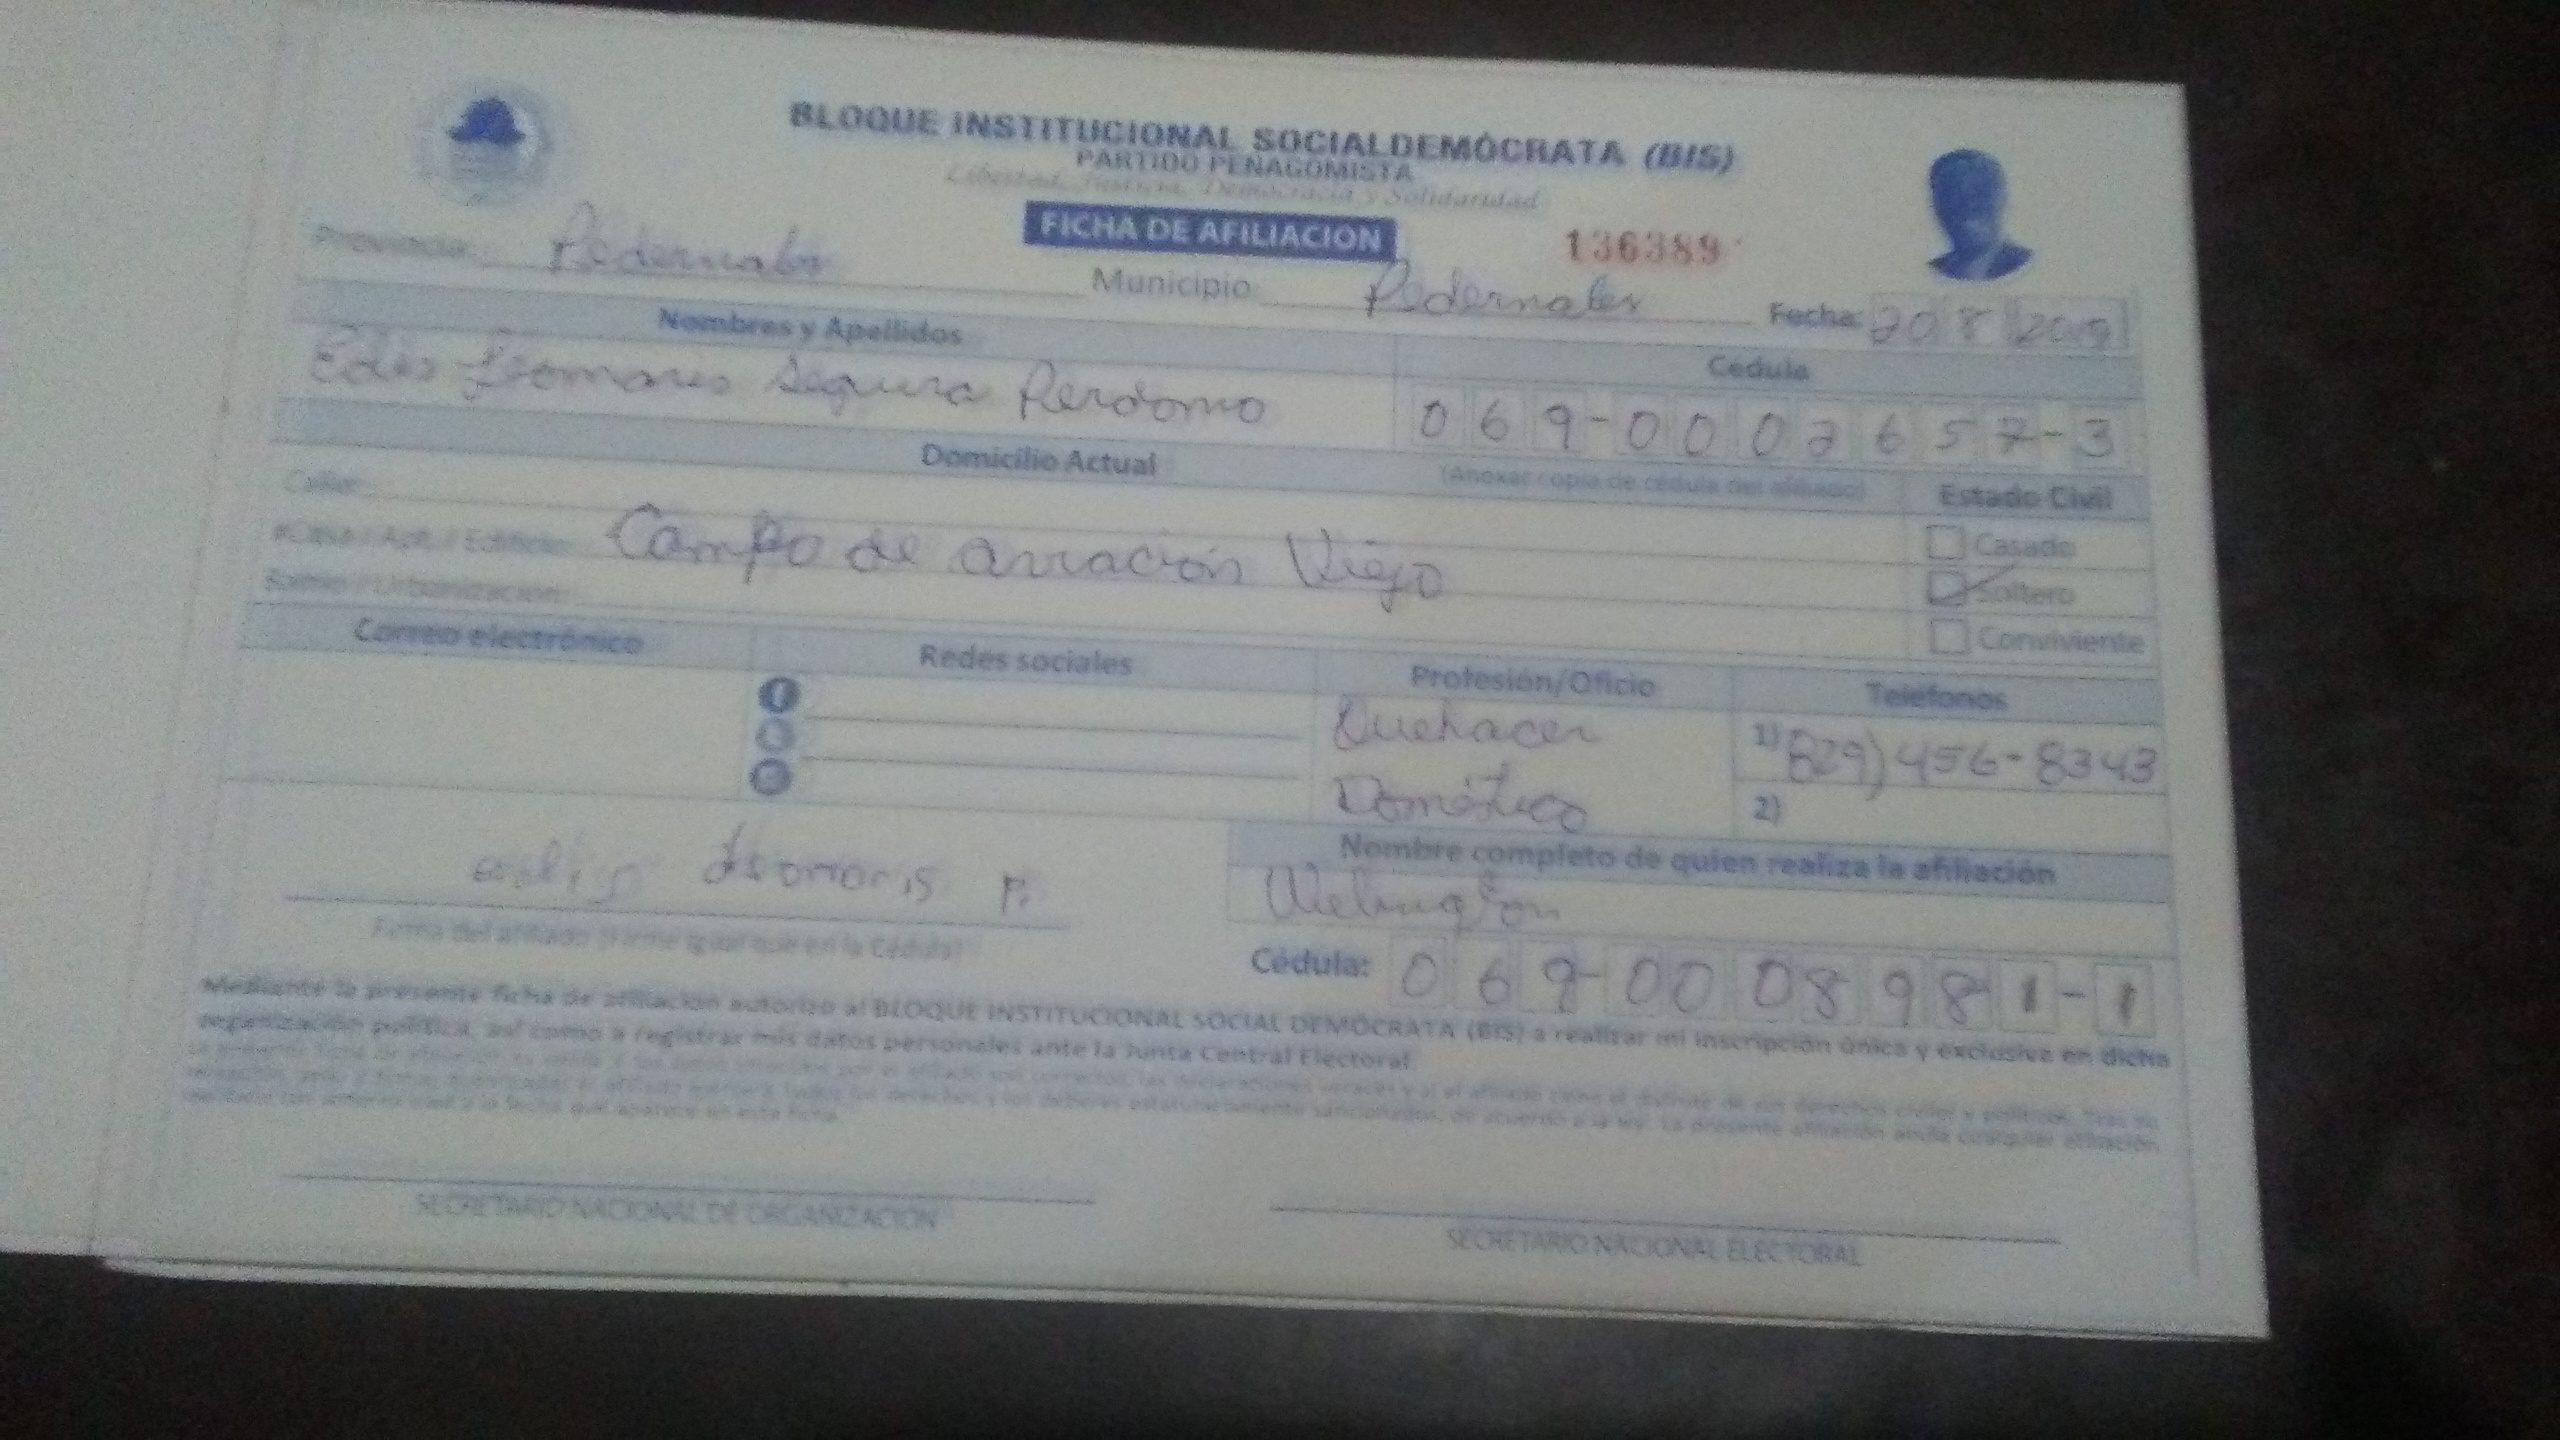 BLOQUE INSTITUCIONAL SOCIALDEMÓCRATA (BIS)
PARTIDO PEÑAGOMISTA
Libertad, Justicia, Democracia y Solidaridad
FICHA DE AFILIACION
136389
Provincia: Pedernales Municipio Pedernales Fecha: 20 8 2019
Nombres y Apellidos Cédula
Segura Perdomo 069-0002657-3
Domicilio Actual (Anexar copia de cédula del afiliado) Estado Civil
Calle:
Casado
#Casa / Apt. / Edificio: Campo de aviación Viejo
Soltero
Barrio / Urbanización:
Conviviente
Correo electrónico Redes sociales Profesión/Oficio Teléfonos
Quehacer 1) 829) 456-8343
Doméstico 2)
Nombre completo de quien realiza la afiliación
P.
Welington
Firma del afiliado (Firme igual que en la Cédula)
Cédula: 069-0008981-1
Mediante la presente ficha de afiliación autorizo al BLOQUE INSTITUCIONAL SOCIAL DEMÓCRATA (BIS) a realizar mi inscripción única y exclusiva en dicha
organización política, así como a registrar mis datos personales ante la Junta Central Electoral
SECRETARIO NACIONAL DE ORGANIZACIÓN SECRETARIO NACIONAL ELECTORAL